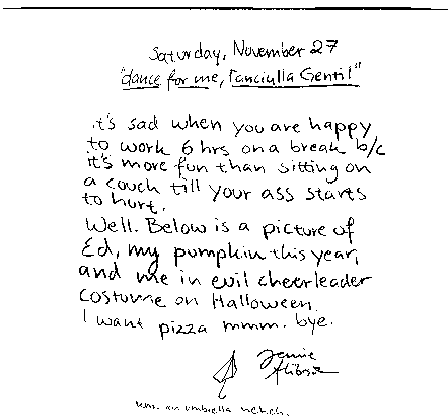 Saturday, November 27
"dance for me, Fanciulla Gentil"
it's sad when you are happy
to work 6 hrs on a break b/c
it's more fun than sitting on
a couch till your ass starts
to hurt.
Well. Below is a picture of
Ed, my pumpkin this year,
and me in evil cheerleader
costume on Halloween.
I want pizza mmm. bye.
Jennie
an umbrella